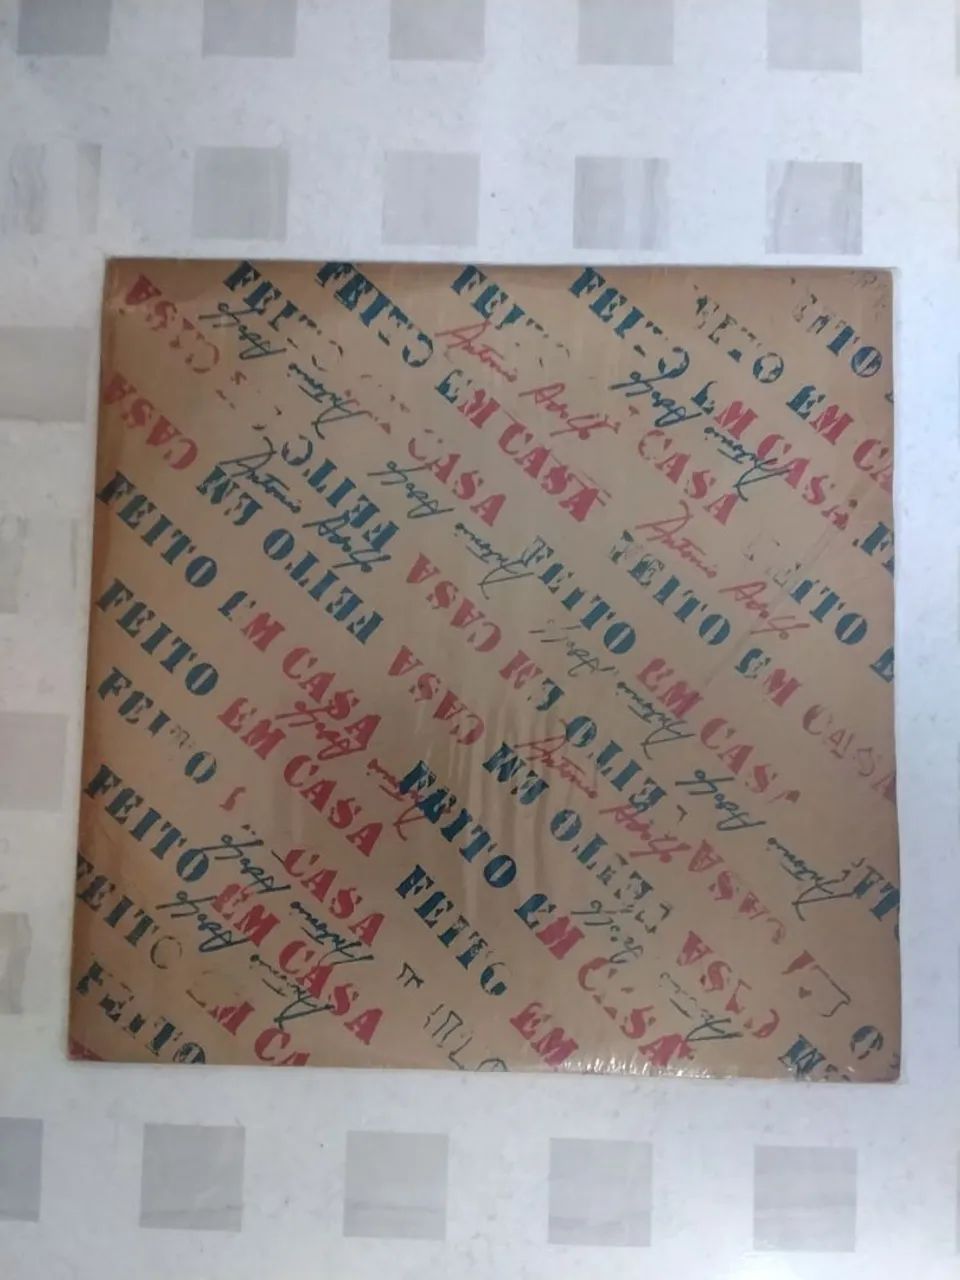 FEITO
FEITO
FEITO
FEITO
FEITO
FEITO
CASA
Antonio Adolfo
Antonio Adolfo
EM CASA
EM CASA
EM CA
CASA
CASA
CASA
Antonio Adolfo
Antonio Adolfo
Antonio Adolfo
FEITO EM CASA
FEITO EM CASA
FEITO EM CASA
FEITO EM CASA
FEITO EM CASA
FEITO EM CASA
Antonio Adolfo
FEITO
Antonio Adolfo
Antonio Adolfo
Antonio Adolfo
FEITO
CASA
FEITO EM CASA
FEITO EM CASA
Antonio Adolfo
Antonio Adolfo
FEITO EM CASA
FEITO EM
CASA
FEITO